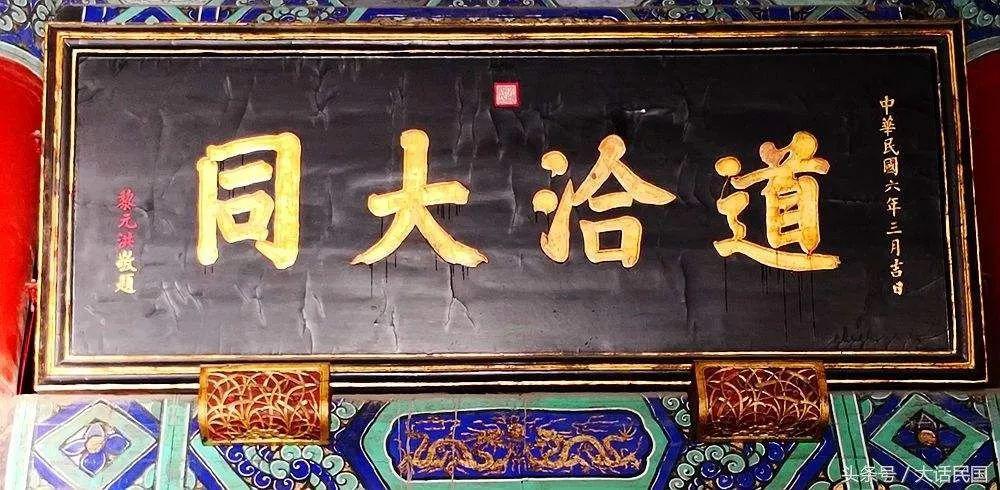 中華民國六年三月吉日
道洽大同
黎元洪敬題
头条号／大话民国